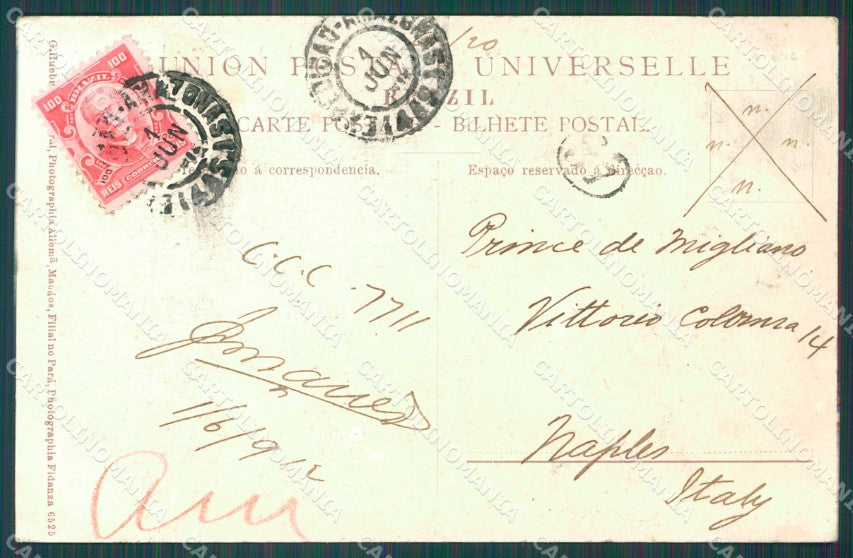 UNION POSTALE UNIVERSELLE
BRAZIL
CARTE POSTALE - BILHETE POSTAL
á correspondencia.
Espaço reservado á direcçao.
100 100
BRAZIL
REIS
AMAZONAS
1
JUN
AMAZONAS
1
JUN
120
n.
n. n.
n.
Prince de Migliano
Vittorio Colonna 14
Naples
Italy
C.C.C. 7711
1/6/912
Photographia Allemã, Manáos, Filial no Pará, Photographia Fidanza 6525
CARTOLINOMANIA